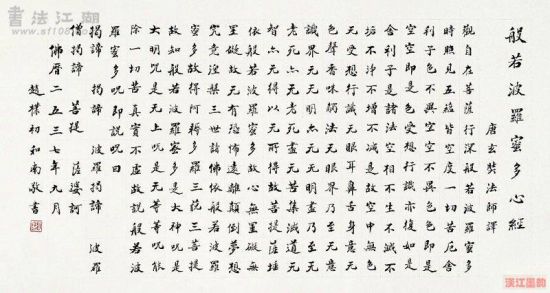 般若波羅蜜多心經
唐玄奘法師譯
觀自在菩薩行深般若波羅蜜多
時照見五蕴皆空度一切苦厄舍
利子色不異空空不異色色即是
空空即是色受想行識亦復如是
舍利子是諸法空相不生不滅不
垢不淨不增不減是故空中無色
无受想行識无眼耳鼻舌身意无
色聲香味觸法无眼界乃至无意
識界无无明亦无无明盡乃至无
老死亦无老死盡无苦集滅道无
智亦无得以无所得故菩提薩埵
依般若波羅蜜多故心無罣礙無
罣礙故无有恐怖遠離顛倒夢想
究竟涅槃三世諸佛依般若波羅
蜜多故得阿耨多羅三藐三菩提
故知般若波羅蜜多是大神呪是
大明呪是无上呪是无等等呪能
除一切苦真實不虛故說般若波
羅蜜多呪即說呪曰
揭諦 揭諦 波羅揭諦 波羅
僧揭諦 菩提 薩婆訶
佛曆二五三七年九月
趙樸初和南敬書
書法江湖
漢江墨韵